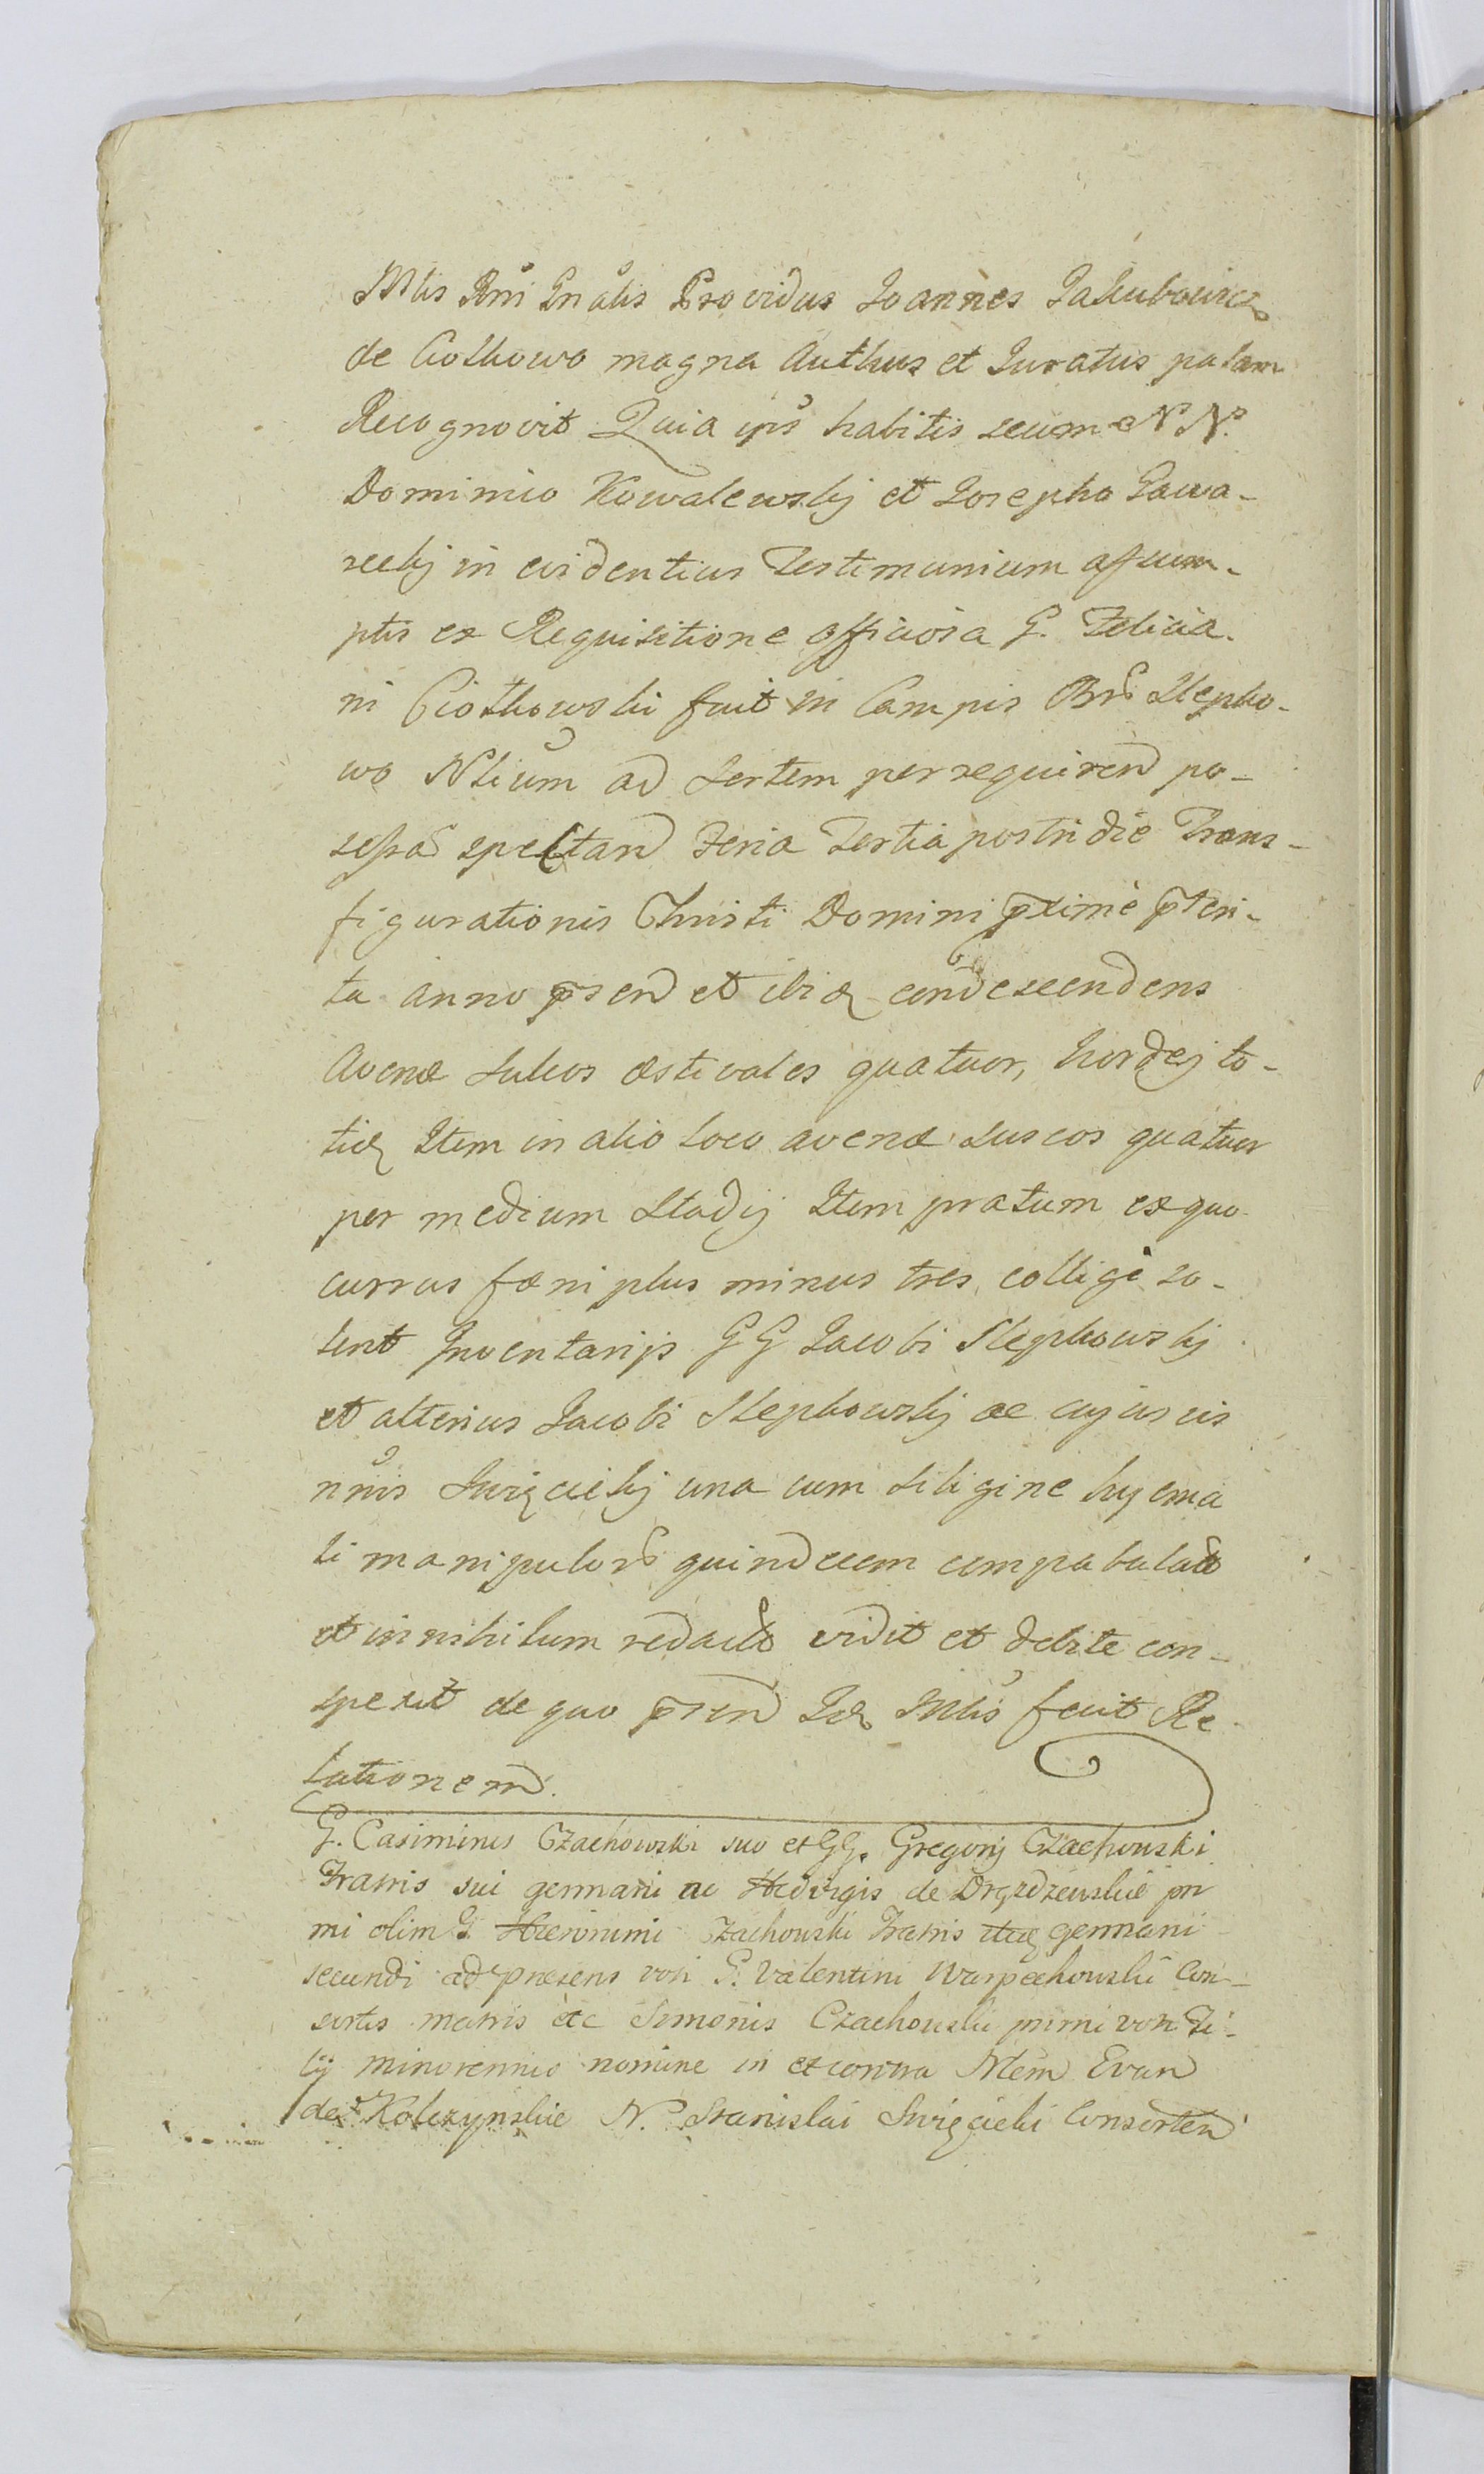 Mtis Rni Gnalis Providus Joannes Jakubowicz
de Ciołkowo magna Authus et Juratus palam
Recognovit Quia ips habitis secum N N
Dominico Kowalewskj et Josepho Gawa-
reckj in evidentius Testimonium assum-
ptis ex Requisitione officiosa G. Felicia-
ni Ciołkowski fuit in Campis Br Slepko-
wo Ntium ad Sortem per requirend po-
sessa spectan Feria Tertia postridie Trans-
figurationis Christi Domini pxime pteri-
ta anno psen et ibiq condescendens
Avenæ sulcos æstivales quatuor, hordej to-
tiq Item in alio loco avenæ suscos quatuor
per medium Stadij Item pratum ex quo
currus fæni plus minus tres colligi so-
lent Inventarijs G G Jacobi Slepkowskj
et alterius Jacobi Slepkowskj ac cujusvis
nnis Swięcickj una cum siligine hyema
li manipulor quindecem compabulat
et in nihilum redact vidit et debite con-
spexit de quo psen Idq Mtis fecit Re
lationem.
G. Casimirus Czachowski suo et GG. Gregorij Czachowski
Fratris sui germani ac Hedvigis de Drązdzewskie pri
mi olim G. Hieronimi Czachowski Fratris itidq germani
secundi ad presens voti G. Valentini Warpechowski Con-
sortis matris etc Simonis Czachowski primi voti Fi-
lij minorennis nomine in et contra Mem Evan
de Kolczynskie N. Stanislai Swięcicki Consorten